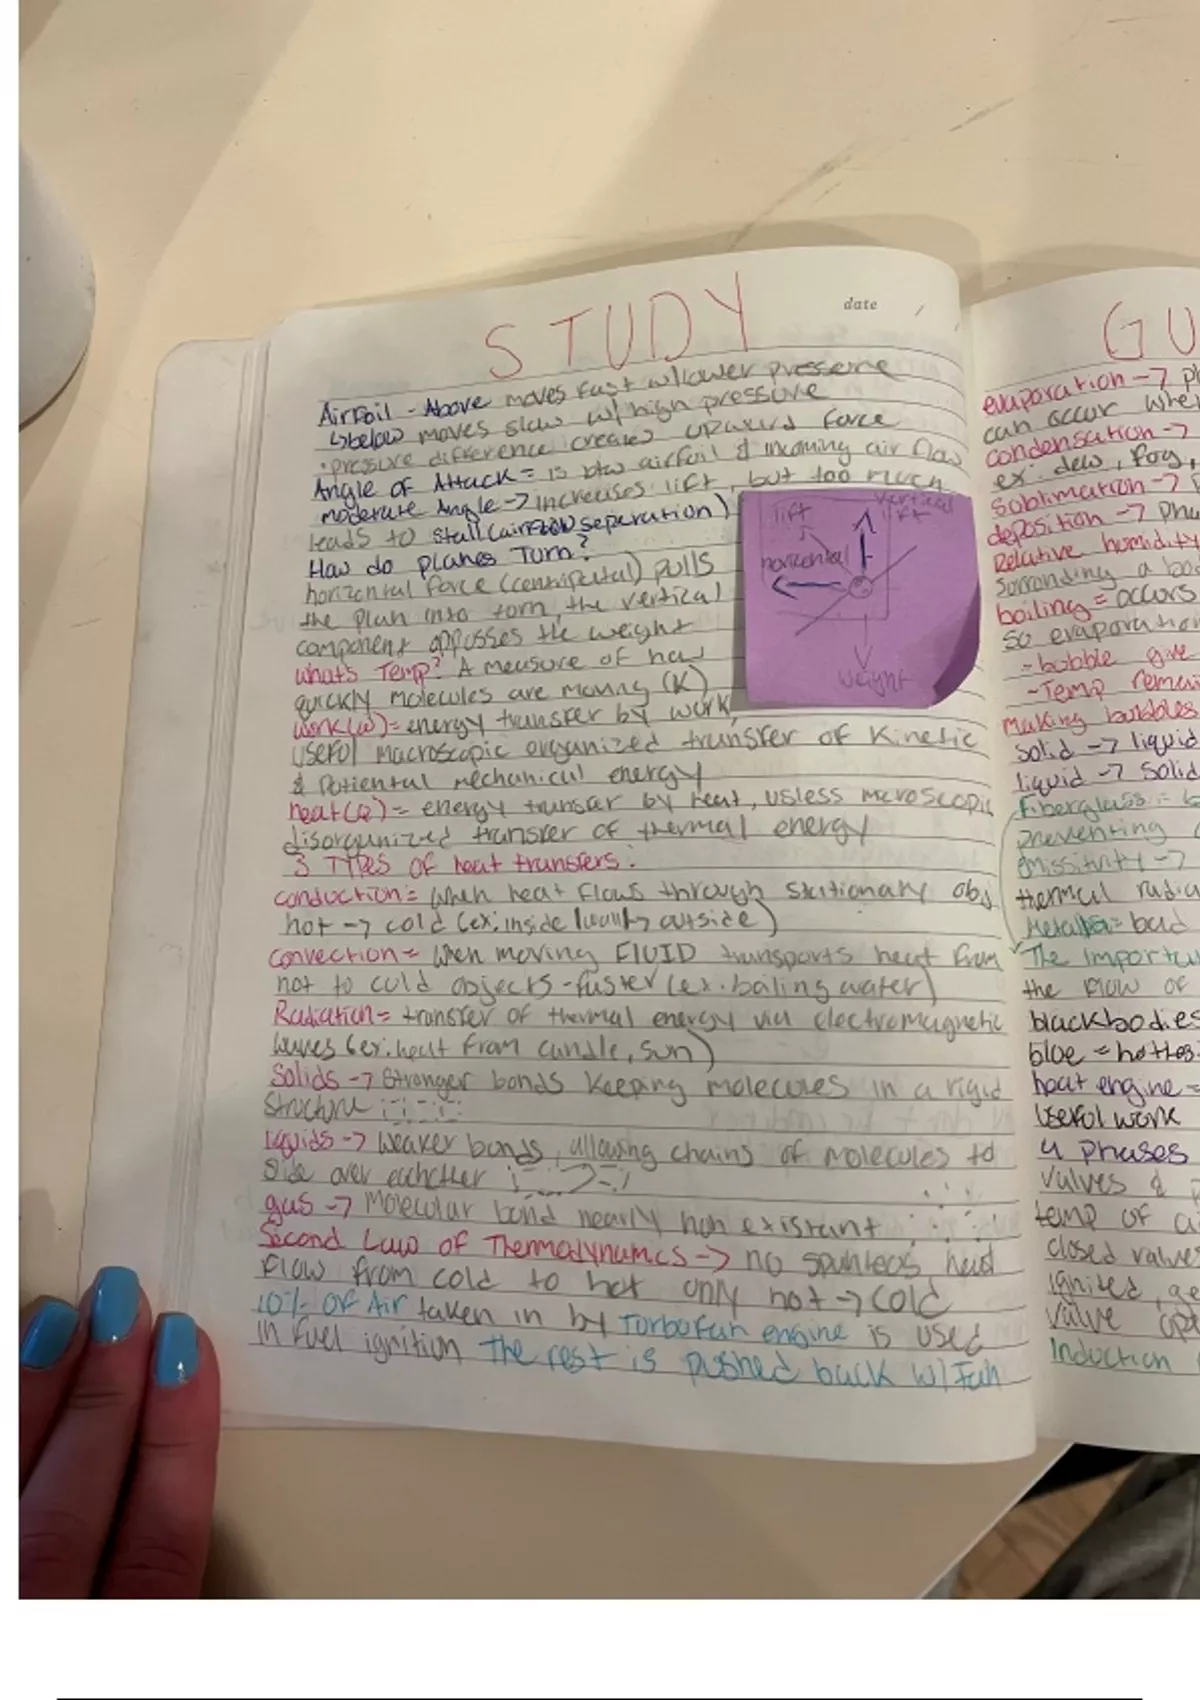 STUDY
date / /
AirFoil - Above moves fast w/lower pressure
↳below moves slow w/ high pressure
· pressure difference creates upward force
Angle of Attack = is btw airfoil & incoming air flow
moderate Angle -> increases lift, but too much
leads to stall (airflow seperation)
How do planes Turn?
horizontal force (centripetal) pulls
the plan into torn, the vertical
component opposses the weight
whats Temp? A measure of how
quickly molecules are moving (K)
work(w) = energy transfer by work,
useful macroscopic organized transfer of Kinetic
& Potiental mechanical energy
heat(Q) = energy transfer by heat, usless microscopic
disorganized transfer of thermal energy
3 TYPES of heat transfers:
conduction = when heat flows through stationary obj
hot -> cold (ex: inside wall -> outside)
convection = when moving FLUID transports heat from
hot to cold objects - faster (ex. boiling water)
Radiation = transfer of thermal energy via electromagnetic
waves (ex: heat from candle, sun)
Solids -> Stronger bonds keeping molecules in a rigid
structure
liquids -> weaker bonds, allowing chains of molecules to
slide over eachother
gas -> Molecular bond nearly non existant
Second Law of Thermodynamics -> no spunteos heat
flow from cold to hot only hot -> cold
10% of Air taken in by Turbofan engine is used
in fuel ignition The rest is pushed back w/ fan
lift
vertical
lift
horizontal
weight
GU
evaporation -> p
can occur whe
condensation ->
ex: dew, fog,
sublimation ->
deposition -> Pha
Relative humidity
Sorronding a
boiling = occurs
so evaporation
- bubble give
- Temp remai
making bubbles
solid -> liquid
liquid -> solid
Fiberglass =
preventing
emissitivity ->
thermal radia
Metal = bad
The importa
the flow of
blackbodies
blue = hottes
heat engine =
useful work
4 phases
valves &
temp of a
closed valves
ignited, ge
valve op
Induction